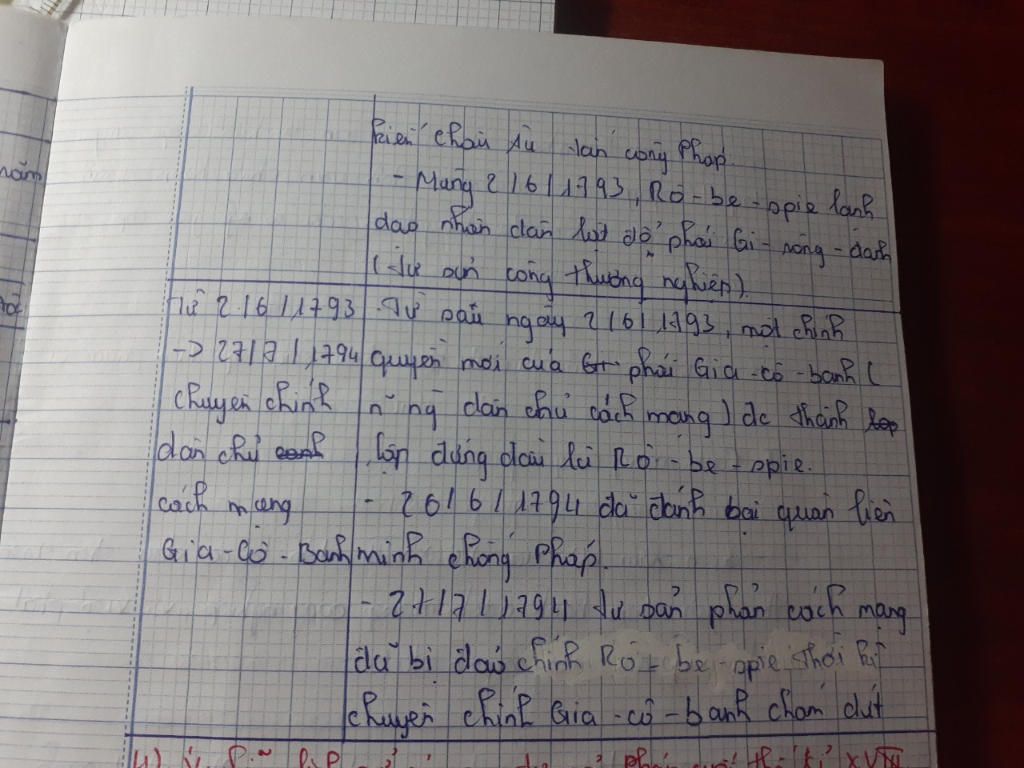 năm
kiến châu Âu tấn công Pháp.
- Mùng 2/6/1793, Rô-be-spie lãnh
đạo nhân dân lật đổ phái Gi-rông-đanh
(tư sản công thương nghiệp).
Từ 2/6/1793
-> 27/7/1794
chuyên chính
dân chủ
cách mạng
Gia-cô-Banh
Từ sau ngày 2/6/1793, một chính
quyền mới của phái Gia-cô-banh (
những dân chủ cách mạng) đc thành
lập đứng đầu là Rô-be-spie.
- 26/6/1794 đã đánh bại quân liên
minh chống Pháp.
- 27/7/1794 tư sản phản cách mạng
đã bị đảo chính Rô-be-spie thời kì
chuyên chính Gia-cô-banh chấm dứt